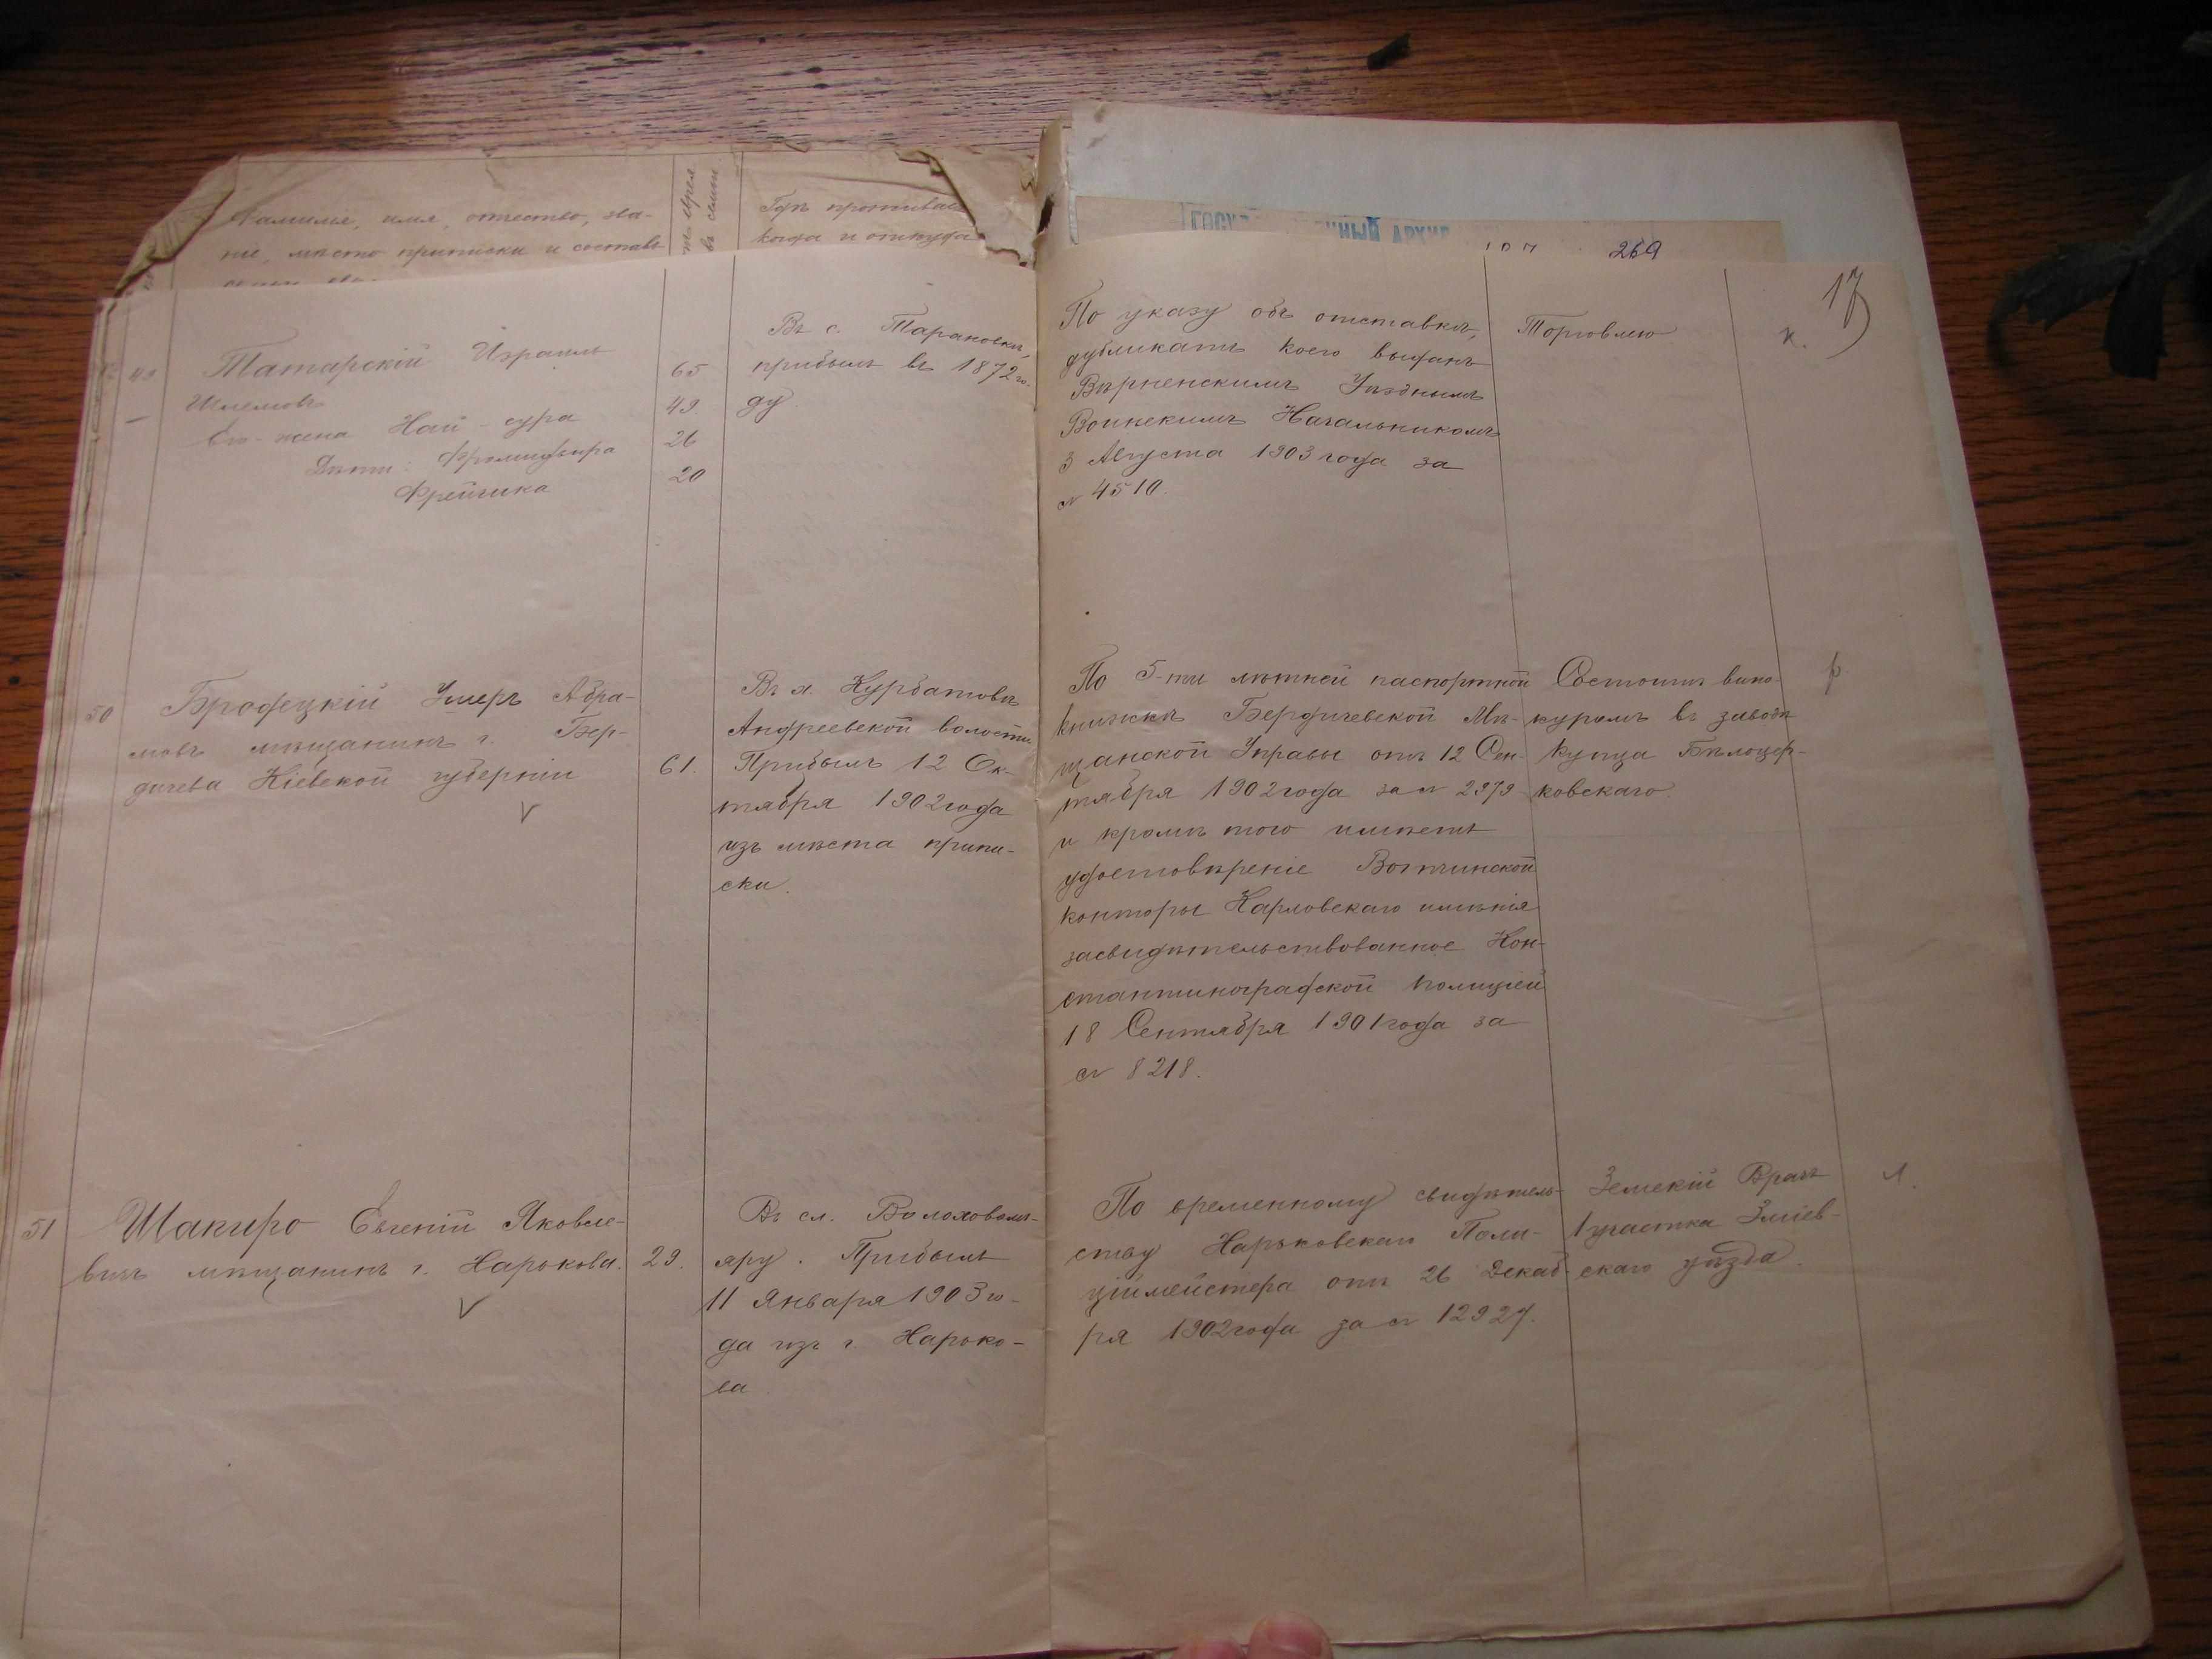 Фамилія, имя, отчество, зва-
ніе, мѣсто приписки и составъ
Гдѣ проживаетъ
когда и откуда
269
17
49
Татарскій Израиль
Шлемовъ
Его-жена Хай-сура
Дѣти: Фромифира
Фрейника
65
49
26
20
Въ с. Тарановкѣ,
прибылъ въ 1872 го-
ду
По указу объ отставкѣ,
дубликатъ коего выданъ
Воинскимъ Начальникомъ
3 Августа 1903 года за
№ 4510.
Торговлею
к.
50
Бродецкій Умеръ Абра-
мовъ мѣщанинъ г. Бер-
дичева Кіевской губерніи
61.
Въ х. Курбатовѣ
Андреевской волости
Прибылъ 12 Ок-
тября 1902 года
изъ мѣста припи-
ски.
По 5-ти лѣтней паспортной
книжкѣ Бердичевской Мѣ-
щанской Управы отъ 12 Сен-
тября 1902 года за № 2979
и кромѣ того имѣетъ
удостовѣреніе Вотчинской
конторы Карловскаго имѣнія
засвидѣтельствованное Кон-
стантиноградской полиціей
18 Сентября 1901 года за
№ 8218.
Состоитъ вино-
куромъ въ заводѣ
купца Бѣлоцер-
ковскаго
р
51
Шапиро Евгеній Яковле-
вичъ мѣщанинъ г. Харькова.
29.
Въ сл. Волоховомъ-
яру. Прибылъ
11 Января 1903 го-
да изъ г. Харько-
ва
По временному свидѣтель-
ству Харьковскаго Поли-
ціймейстера отъ 26 Декаб-
ря 1902 года за № 12927.
Земскій Врачъ
1 участка Зміев-
скаго уѣзда.
л.